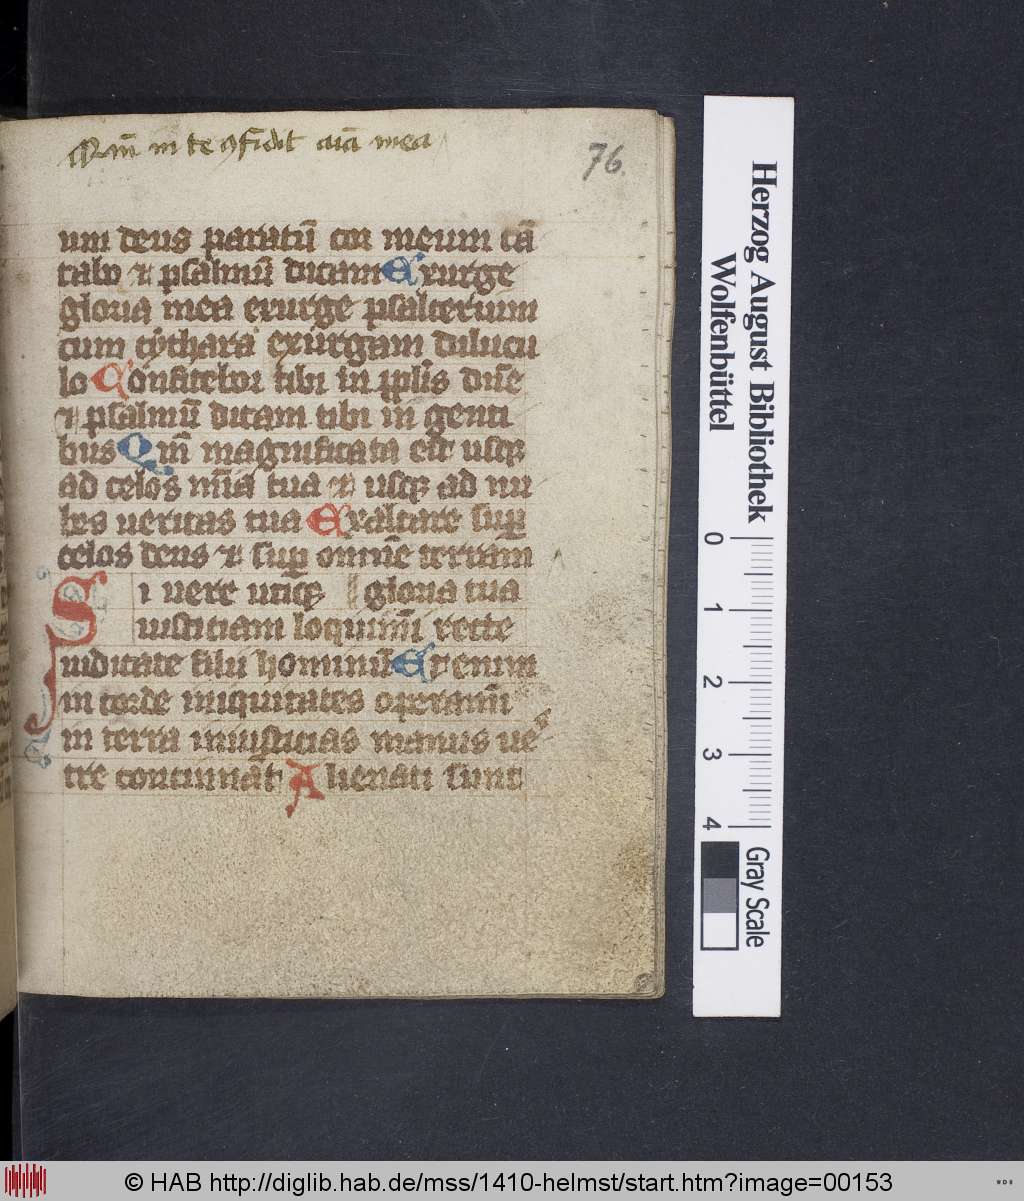 Qm̄ in te ꝯfidit aīa mea
76.
um deus paratū cor meum cā
tabo ⁊ psalmū dicam Exurge
gloria mea exurge psalterium
cum cythara exurgam dilucu
lo Confitebor tibi in pplīs dn̄e
⁊ psalmū dicam tibi in genti
bus Qm̄ magnificata est usqꝫ
ad celos mīa tua ⁊ usqꝫ ad nu
bes ueritas tua Exaltare suꝑ
celos deus ⁊ suꝑ omnē terram
Si uere utiqꝫ gloria tua
iusticiam loquimī recte
iudicate filii hominū Etenim
in corde iniquitates operamī
in terra iniusticias manus ue
stre concinnāt Alienati sunt
Herzog August Bibliothek
Wolfenbüttel
0 1 2 3 4
Gray Scale
© HAB http://diglib.hab.de/mss/1410-helmst/start.htm?image=00153